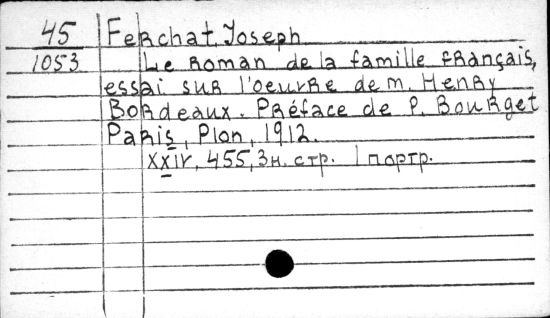 45 Ferchat, Joseph
1053 Le Roman de la famille français,
essai sur l'oeuvre de m. Henry
Bordeaux. Préface de P. Bourget
Paris, Plon, 1912.
XXIV, 455, 3н. стр. 1 портр.